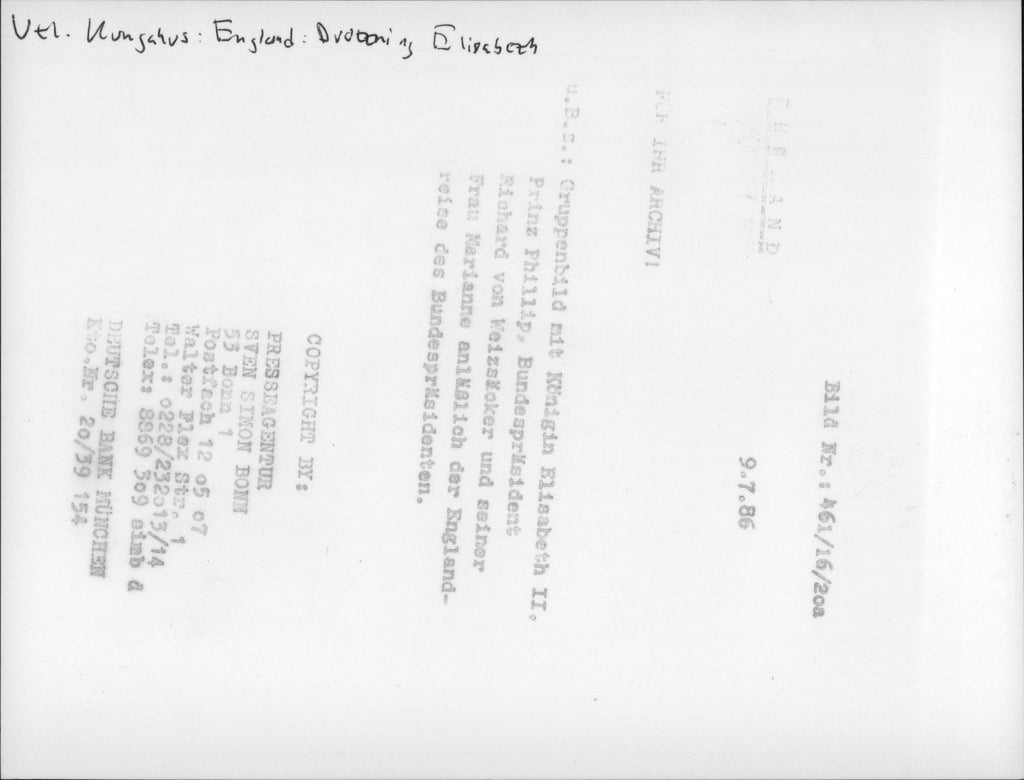 Utl. Kungahus: England: Drottning Elisabeth
Bild Nr.: 461/16/20a
E N G L A N D
9.7.86
FÜR IHR ARCHIV!
u.B.z.: Gruppenbild mit Königin Elisabeth II.
Prinz Phillip, Bundespräsident
Richard von Weizsäcker und seiner
Frau Marianne anläßlich der England-
reise des Bundespräsidenten.
COPYRIGHT BY:
PRESSEAGENTUR
SVEN SIMON BONN
53 Bonn 1
Postfach 12 05 07
Walter Flex Str. 1
Tel.: 0228/232013/14
Telex: 8869 309 simb d
DEUTSCHE BANK MÜNCHEN
Kto.Nr. 20/39 154